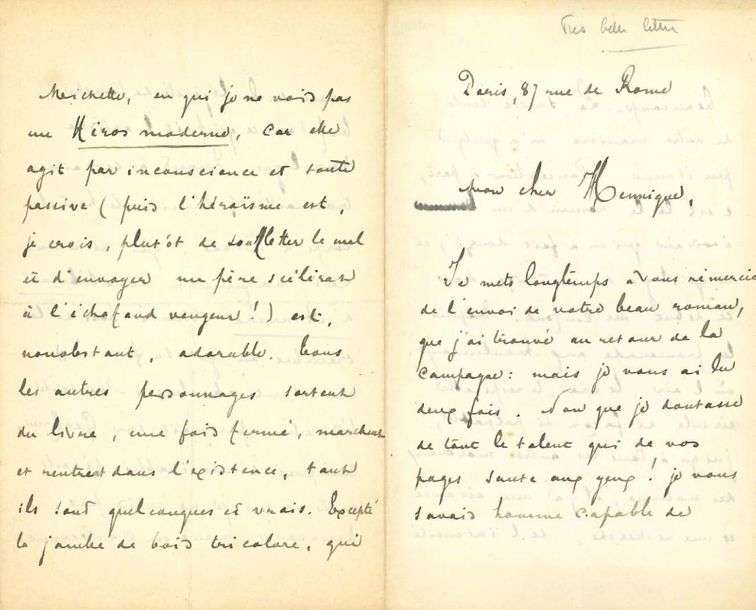 Michelle, en qui je ne vois pas
un Héros moderne, car elle
agit par inconscience et toute
passive (puis l'héroïsme est,
je crois, plutôt de souffleter le mal
et d'envoyer un père scélérat
à l'échafaud vengeur!) est,
nonobstant, adorable. Tous
les autres personnages sortent
du livre, une fois fermé, marchent
et rentrent dans l'existence, tant
ils sont quelconques et vrais. Excepté
la jambe de bois tricolore, qui
Très belle lettre
Paris, 87 rue de Rome
Mon cher Hennique,
Je mets longtemps à vous remercier
de l'envoi de votre beau roman,
que j'ai trouvé au retour de la
campagne: mais je vous ai lu
deux fois. Non que je doutasse
de tout le talent qui de vos
pages saute aux yeux! je vous
savais homme capable de